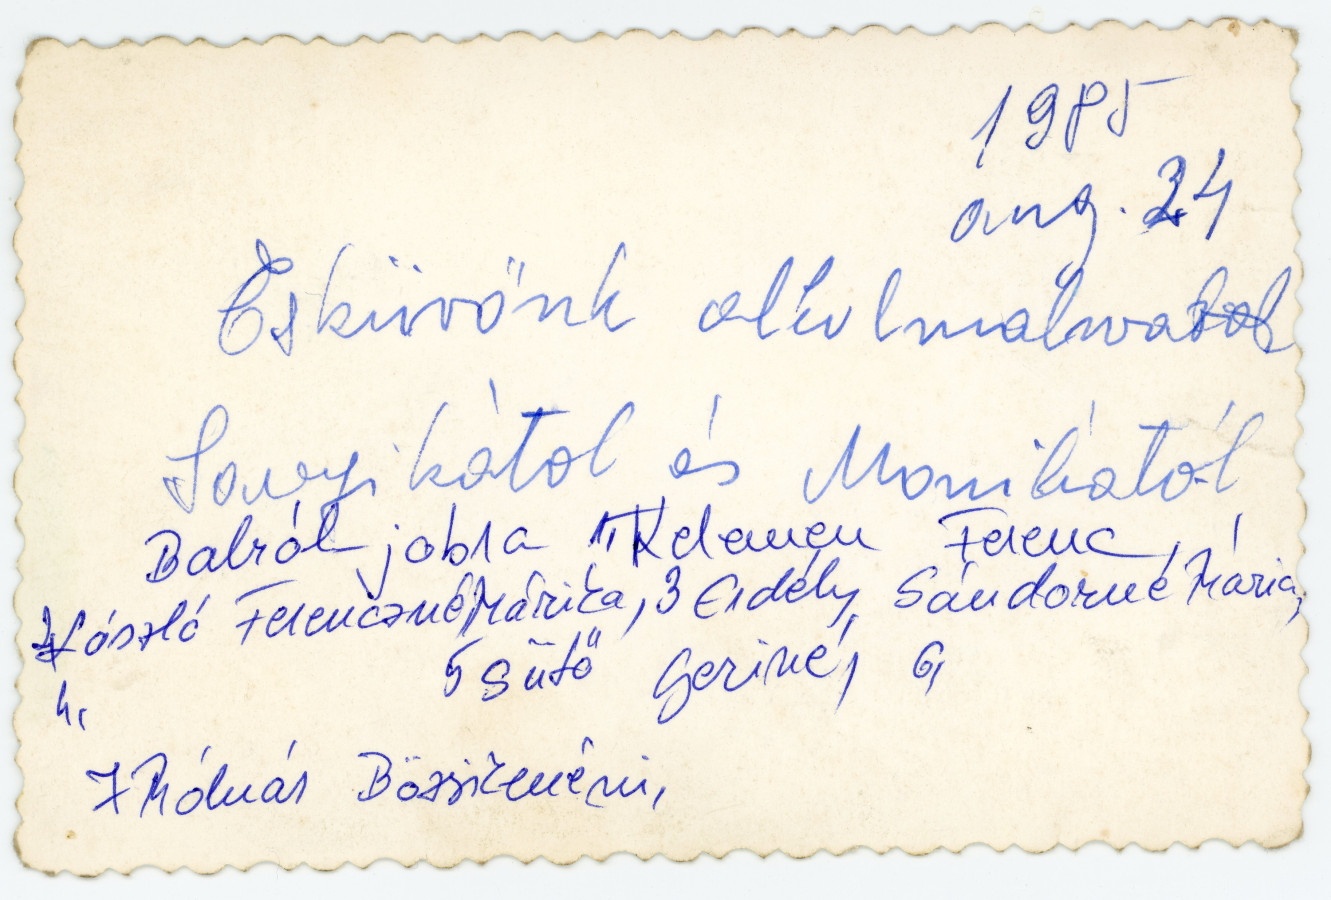 1985
aug. 24
Esküvőnk alkalmalvabol
Sanyikátol és Monikától
Balról jobra 1, Kelemen Ferenc,
2 László Ferenczné Márika, 3 Erdély Sándorné Mária,
4, 5 Sütő Geriné, 6,
7 Mólnás Bözsikenéni,